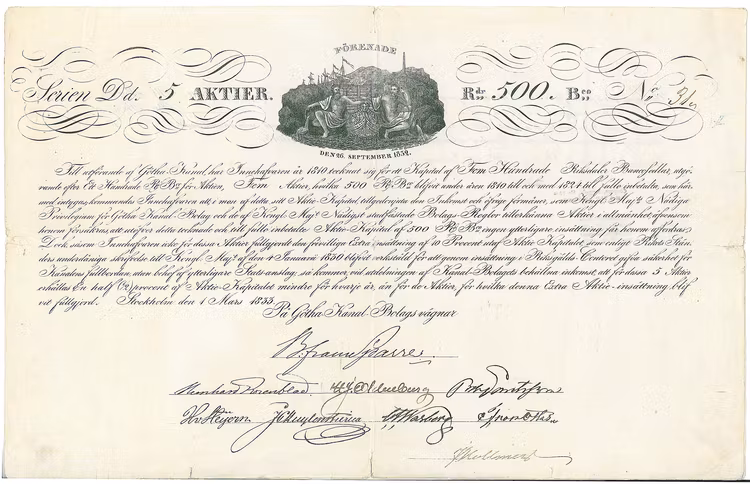 FÖRENADE
Serien D d. 5 AKTIER. Rdr 500. Bco No
DEN 26. SEPTEMBER 1832.
Till utförande af Götha-Kanal, har Innehafvaren år 1810 tecknat sig för ett Kapital af Fem Hundrade Riksdaler Bancosedlar, utgö-
rande efter Ett Hundrade Rdr Bco för Aktien, Fem Aktier, hvilka 500 Rdr Bco blifvit under åren 1810 till och med 1824 till fullo inbetalte, som här-
med intygas, kommande Innehafvaren att, i mon af detta sitt Aktie Kapital, tillgodonjuta den Inkomst och öfrige förmåner, som Kongl. Majts Nådiga
Privilegium för Götha Kanal-Bolag och de af Kongl. Majt Nådigst stadfästade Bolags-Reglor tillerkänna Aktier i allmänhet, äfvensom
honom försäkras, att utöfver detta tecknade och till fullo inbetalte Aktie-Kapital af 500 Rdr Bco ingen ytterligare insättning får honom affordras;
Dock, såsom Innehafvaren icke för dessa Aktier fullgjordt den frivillige Extra-insättning af 10 Procent utaf Aktie Kapitalet, som enligt Rikets Stän-
ders underdåniga skrifvelse till Kongl. Majt af den 1 Januarii 1830 blifvit verkställd för att genom insättning i Riksgälds-Contoret gifva säkerhet för
Kanalens fullbordan, utan behof af ytterligare Stats-anslag, så kommer, vid utdelningen af Kanal-Bolagets behållna inkomst, att för dessa 5 Aktier
erhållas En half (½) procent af Aktie-Kapitalet mindre för hvarje år, än för de Aktier, för hvilka denna Extra Aktie-insättning blif-
vit fullgjord. Stockholm den 1 Mars 1833.
På Götha Kanal-Bolags vägnar